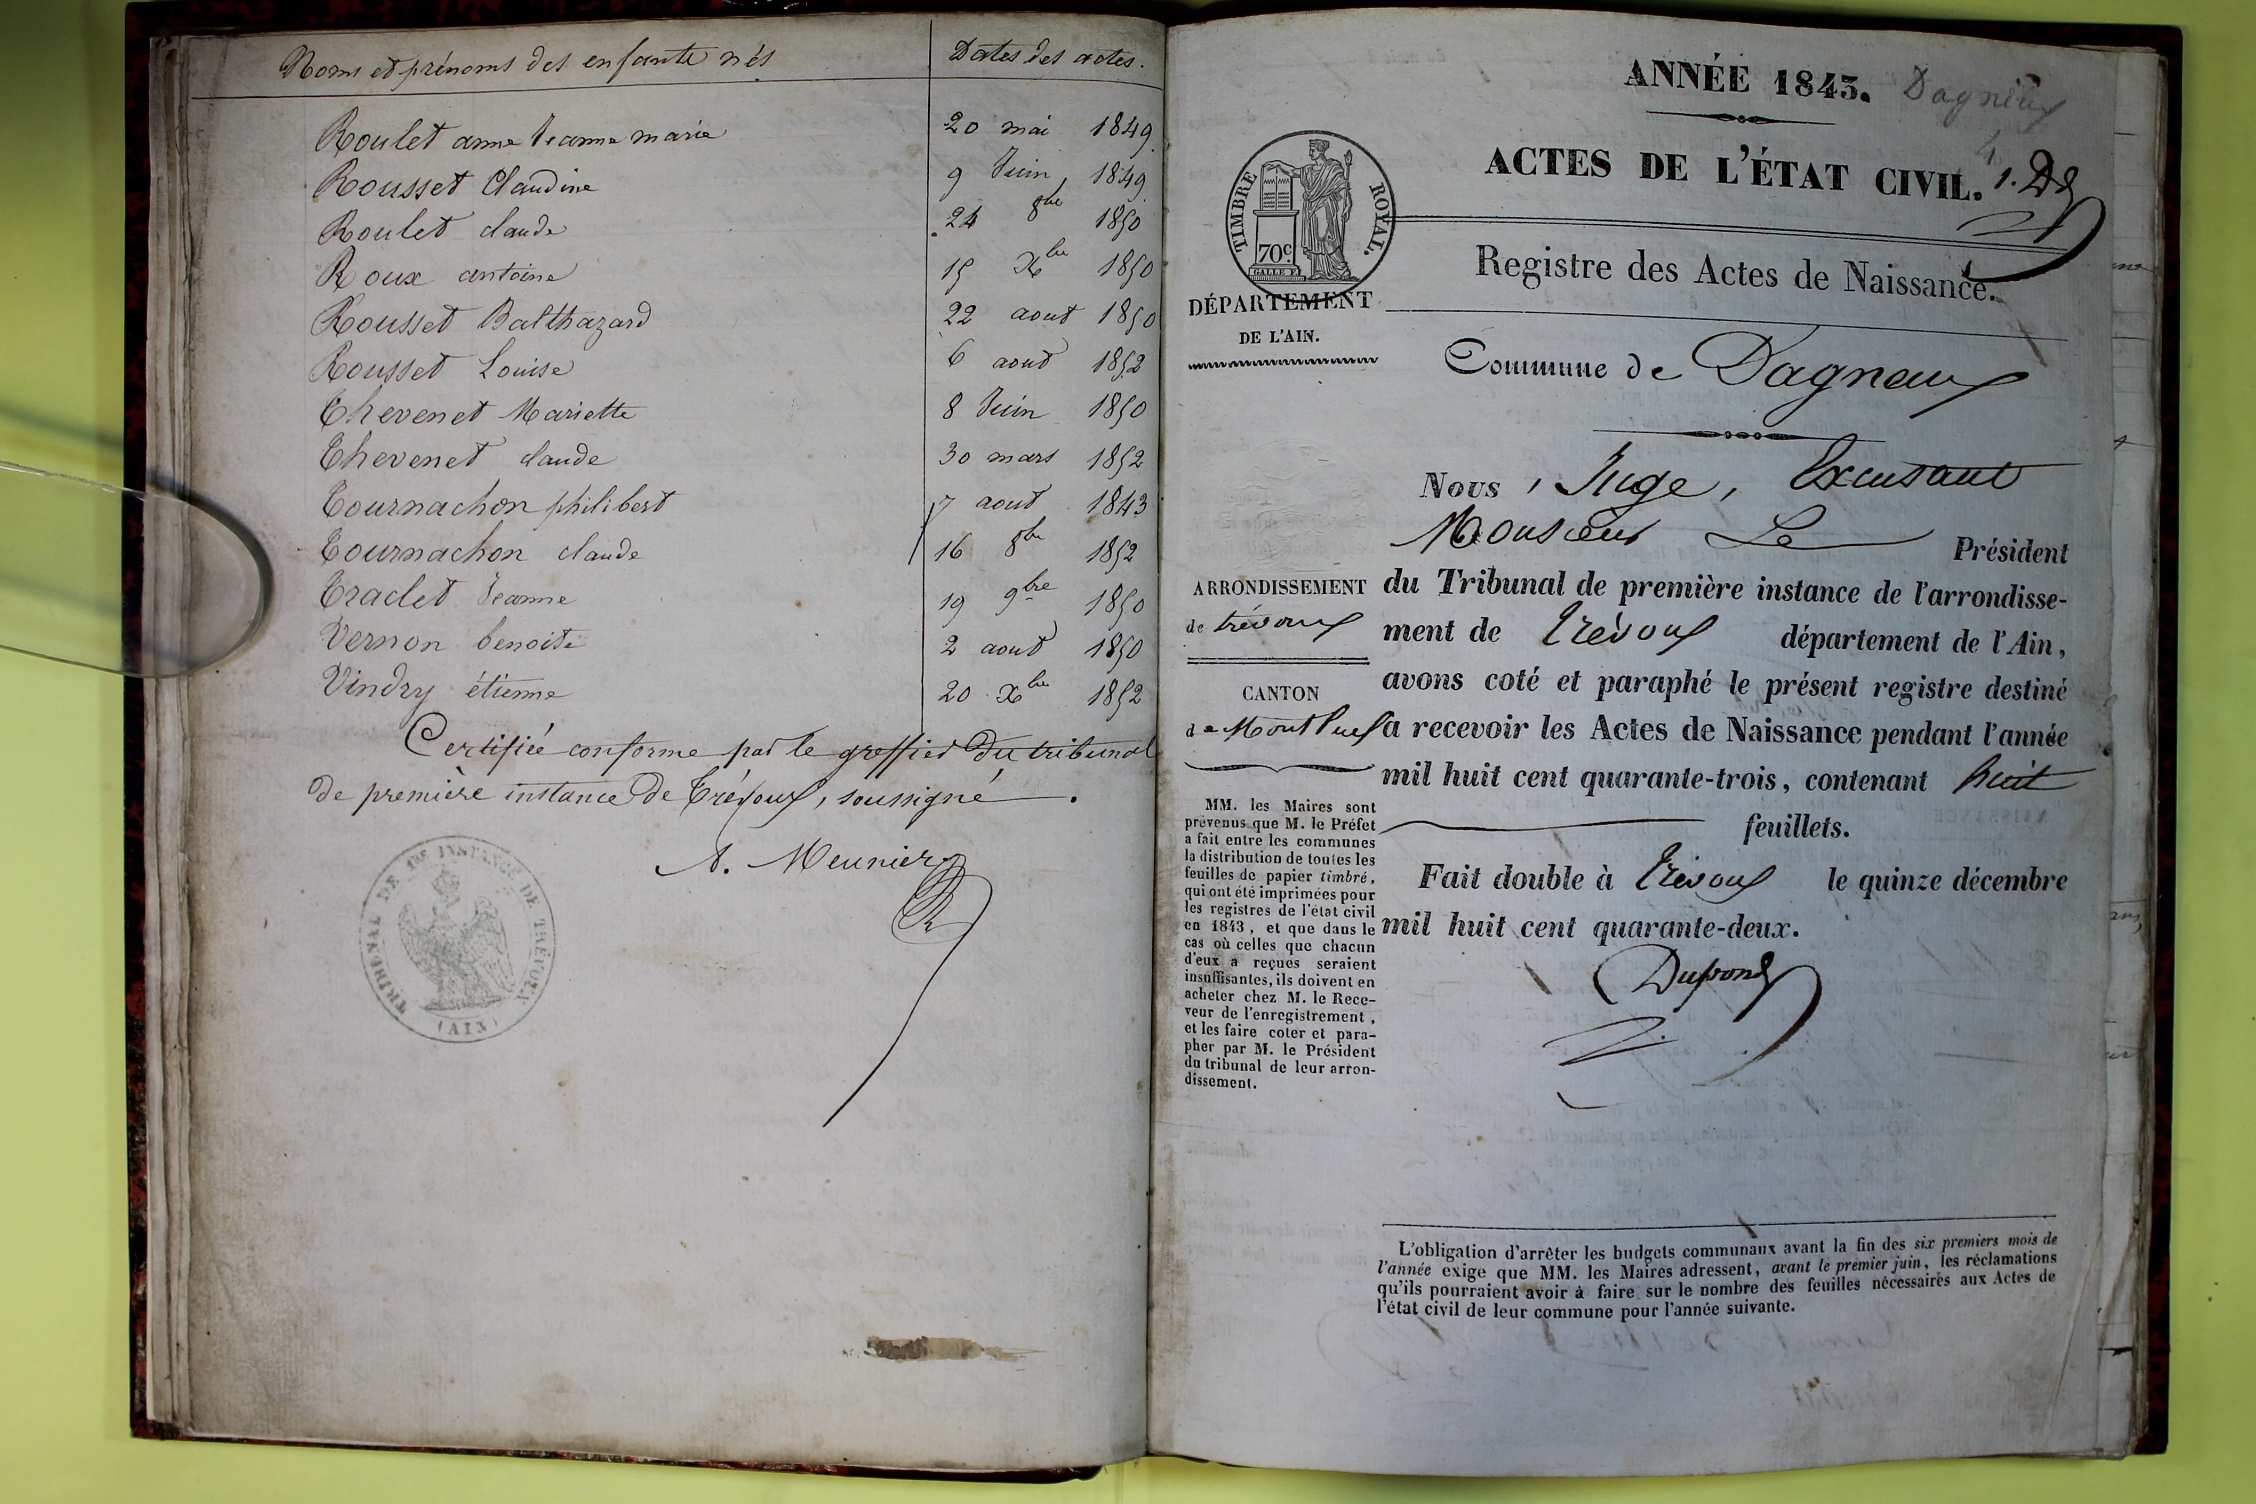 Noms et prénoms des enfants nés Dates des actes.
Roulet anne Jeanne marie 20 mai 1849
Rousset Claudine 9 Juin 1849
Roulet claude 24 8bre 1850
Roux antoine 15 Xbre 1850
Rousset Balthazard 22 aout 1850
Rousset Louise 6 aout 1852
Thevenet Mariette 8 Juin 1850
Thevenet claude 30 mars 1852
Tournachon philibert 7 aout 1843
Tournachon claude 16 8bre 1852
Traclet Jeanne 19 9bre 1850
Vernon benoite 2 aout 1850
Vindry étienne 20 Xbre 1852
Certifiée conforme par le greffier du tribunal
de première instance de Trévoux, soussigné.
A. Meunier
TRIBUNAL DE 1re INSTANCE DE TRÉVOUX
(AIN)
ANNÉE 1843. Dagneux
ACTES DE L'ÉTAT CIVIL.
TIMBRE ROYAL.
70c
Registre des Actes de Naissance.
DÉPARTEMENT
DE L'AIN.
Commune de Dagneux
Nous, Juge, Excusant
Monsieur Le Président
du Tribunal de première instance de l'arrondisse-
ment de Trévoux département de l'Ain,
avons coté et paraphé le présent registre destiné
à recevoir les Actes de Naissance pendant l'année
mil huit cent quarante-trois, contenant huit
feuillets.
Fait double à Trévoux le quinze décembre
mil huit cent quarante-deux.
Dupond
ARRONDISSEMENT
de trévoux
CANTON
de Montluel
MM. les Maires sont
prévenus que M. le Préfet
a fait entre les communes
la distribution de toutes les
feuilles de papier timbré,
qui ont été imprimées pour
les registres de l'état civil
en 1843, et que dans le
cas où celles que chacun
d'eux a reçues seraient
insuffisantes, ils doivent en
acheter chez M. le Rece-
veur de l'enregistrement,
et les faire coter et para-
pher par M. le Président
du tribunal de leur arron-
dissement.
L'obligation d'arrêter les budgets communaux avant la fin des six premiers mois de
l'année exige que MM. les Maires adressent, avant le premier juin, les réclamations
qu'ils pourraient avoir à faire sur le nombre des feuilles nécessaires aux Actes de
l'état civil de leur commune pour l'année suivante.